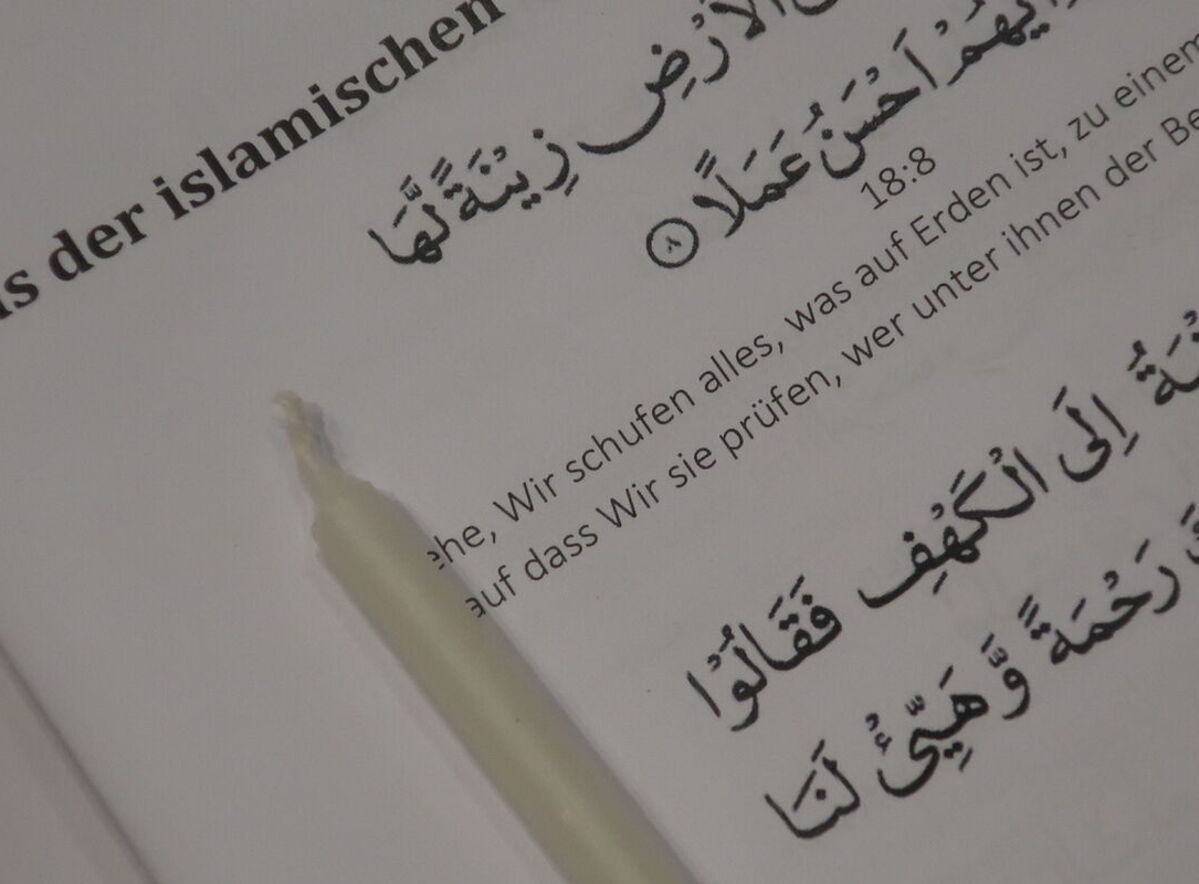 der islamischen
الْاَرْضِ زِيْنَةً لَّهَا
اَيُّهُمْ اَحْسَنُ عَمَلًا ۸
18:8
Wir schufen alles, was auf Erden ist, zu einem
auf dass Wir sie prüfen, wer unter ihnen der
اِلَى الْكَهْفِ فَقَالُوْا
رَحْمَةً وَّ هَيِّئْ لَنَا